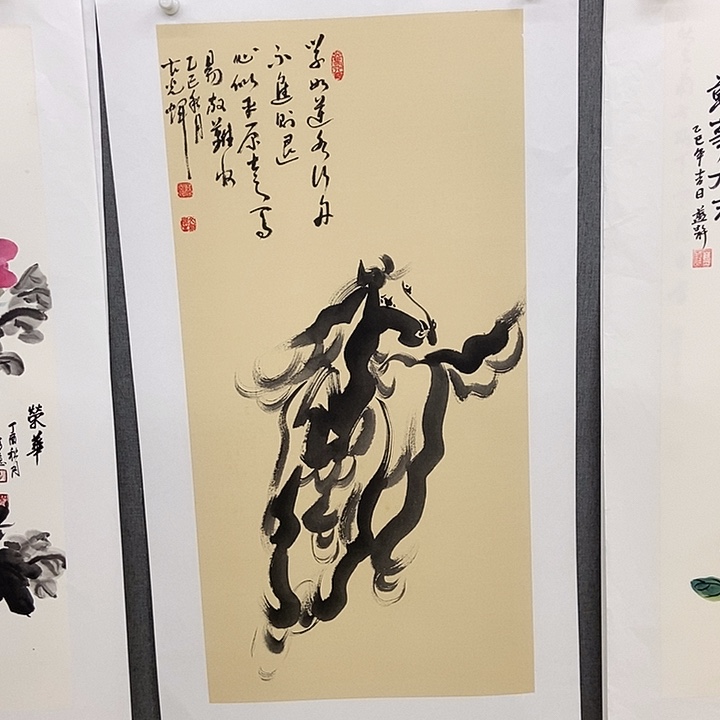 学如逆水行舟
不進則退
心似平原走馬
易放難收
乙巳秋月
榮華
丁酉秋月
乙巳年吉日